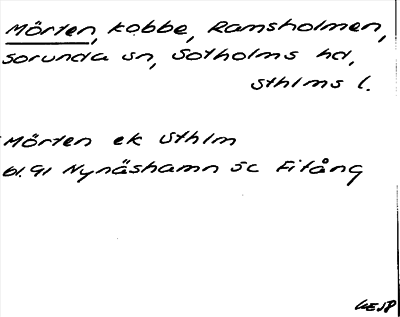 Mörten, kobbe, Ramsholmen,
Sorunda sn, Sotholms hd,
Sthlms l.
Mörten ek Sthlm
bl. 91 Nynäshamn SC Fifång